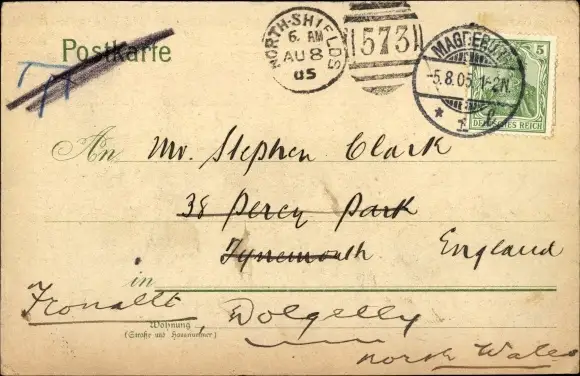 Postkarte
NORTH-SHIELDS
6. AM
AU 8
05
573
MAGDEBURG
-5.8.05. 1-2N.
* 1
5
DEUTSCHES REICH
An Mr. Stephen Clark
38 Percy Park
Tynemouth England
in
Fronallt
Wohnung
(Straße und Hausnummer)
Dolgelly
North Wales